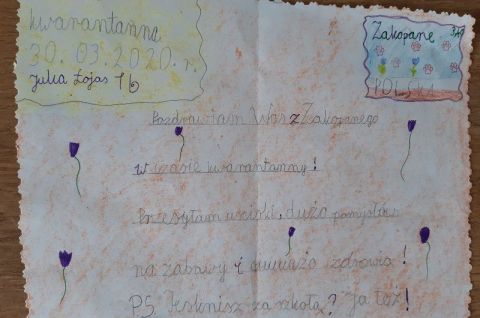 kwarantanna
30. 03. 2020. r.
Julia Łojas 1b
Zakopane
POLSKA
Pozdrawiam Was z Zakopanego
w czasie kwarantanny!
Przesyłam uściski, dużo pomysłów
na zabawy i dużo zdrowia!
PS. Tesknisz za szkołą? Ja też!